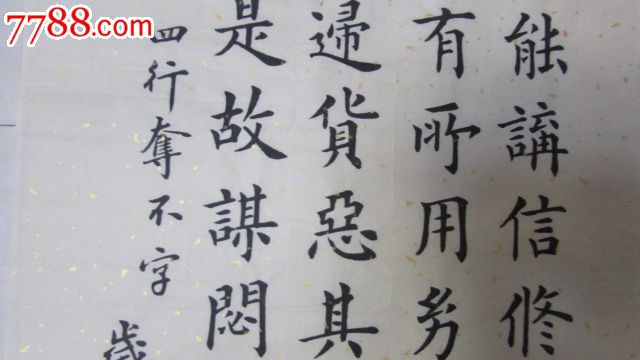 7788.com
能講信修
有所用
歸貨惡其
是故謀悶
四行奪不字 歲